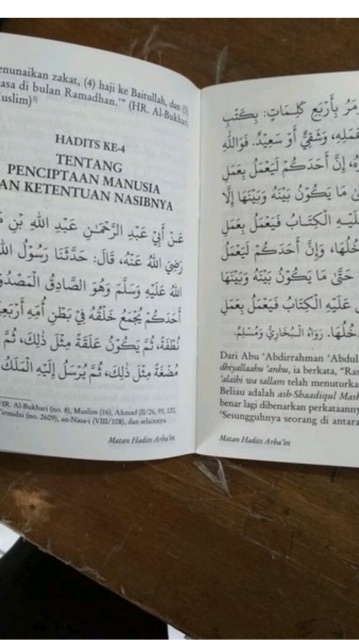 enunaikan zakat, (4) haji ke Baitullah, dan (5)
asa di bulan Ramadhan.'" (HR. Al-Bukhari
Muslim)³⁾
HADITS KE-4
TENTANG
PENCIPTAAN MANUSIA
AN KETENTUAN NASIBNYA
عَنْ أَبِيْ عَبْدِ الرَّحْمٰنِ عَبْدِ اللهِ بْنِ
رَضِيَ اللهُ عَنْهُ، قَالَ: حَدَّثَنَا رَسُوْلُ
اللهُ عَلَيْهِ وَسَلَّمَ وَهُوَ الصَّادِقُ الْمَصْدُوْ
أَحَدَكُمْ يُجْمَعُ خَلْقُهُ فِيْ بَطْنِ أُمِّهِ أَرْبَعِيْ
نُطْفَةً، ثُمَّ يَكُوْنُ عَلَقَةً مِثْلَ ذٰلِكَ، ثُمَّ
مُضْغَةً مِثْلَ ذٰلِكَ، ثُمَّ يُرْسَلُ إِلَيْهِ الْمَلَكُ
HR. Al-Bukhari (no. 8), Muslim (16), Ahmad (II/26, 93, 120,
Tirmidzi (no. 2609), an-Nasa-i (VIII/108), dan selainnya.
Matan Hadits Arba'in
مَرُ بِأَرْبَعِ كَلِمَاتٍ: بِكَتْبِ
عَمَلِهِ، وَشَقِيٌّ أَوْ سَعِيْدٌ. فَوَاللهِ
إِنَّ أَحَدَكُمْ لَيَعْمَلُ بِعَمَلِ
مَا يَكُوْنُ بَيْنَهُ وَبَيْنَهَا إِلَّا
عَلَيْهِ الْكِتَابُ فَيَعْمَلُ بِعَمَلِ
خُلُهَا، وَإِنَّ أَحَدَكُمْ لَيَعْمَلُ
حَتَّى مَا يَكُوْنُ بَيْنَهُ وَبَيْنَهَا
عَلَيْهِ الْكِتَابُ فَيَعْمَلُ بِعَمَلِ
خُلُهَا. رَوَاهُ الْبُخَارِيُّ وَمُسْلِمٌ.
Dari Abu 'Abdirrahman 'Abdul
dhiyallaahu 'anhu, ia berkata, "Ras
'alaihi wa sallam telah menuturka
Beliau adalah ash-Shaadiqul Mash
benar lagi dibenarkan perkataann
'Sesungguhnya seorang di antara
Matan Hadits Arba'in